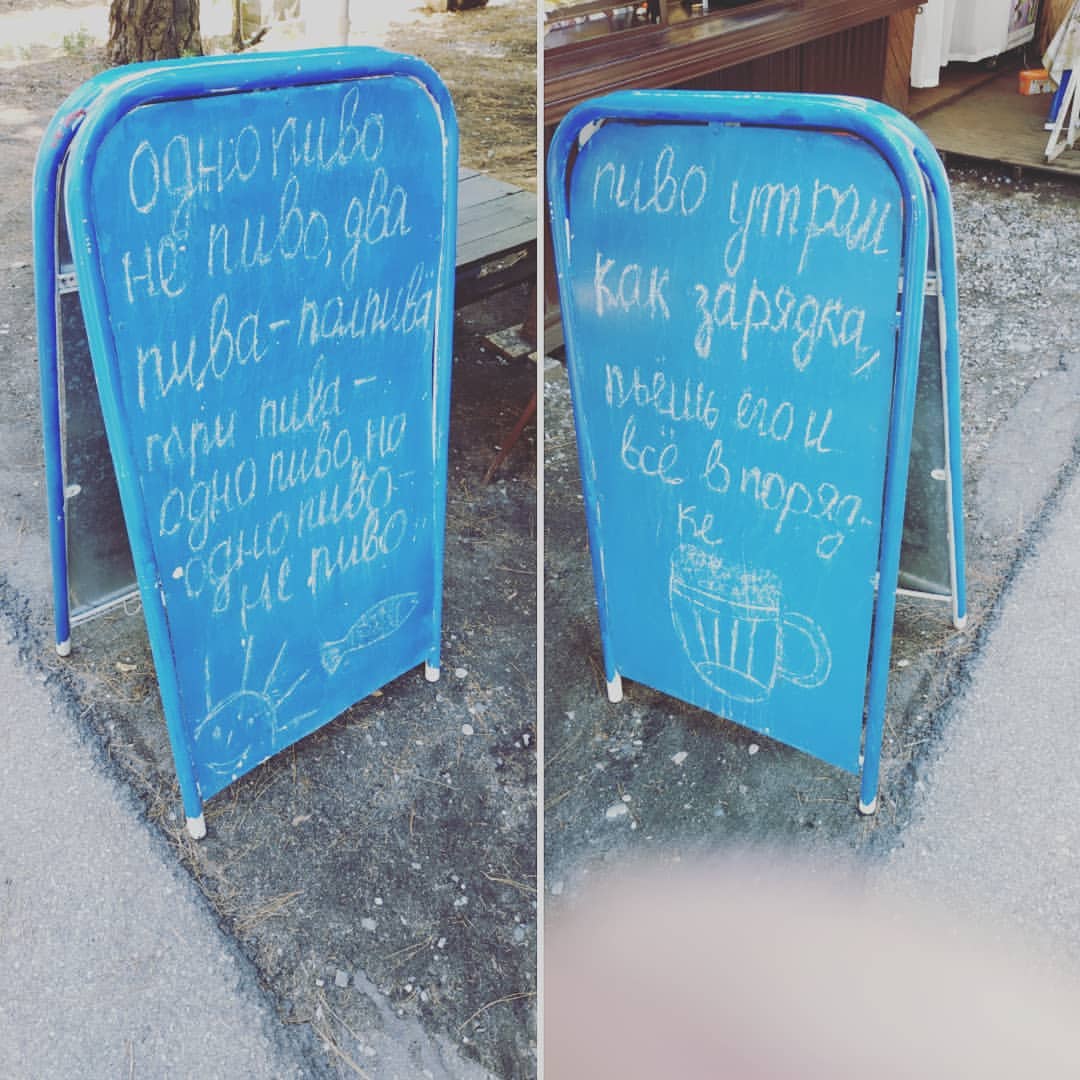 одно пиво
не пиво, два
пива - полпива
три пива -
одно пиво, но
одно пиво -
не пиво...
пиво утром
как зарядка,
пьёшь его и
всё в поряд-
ке